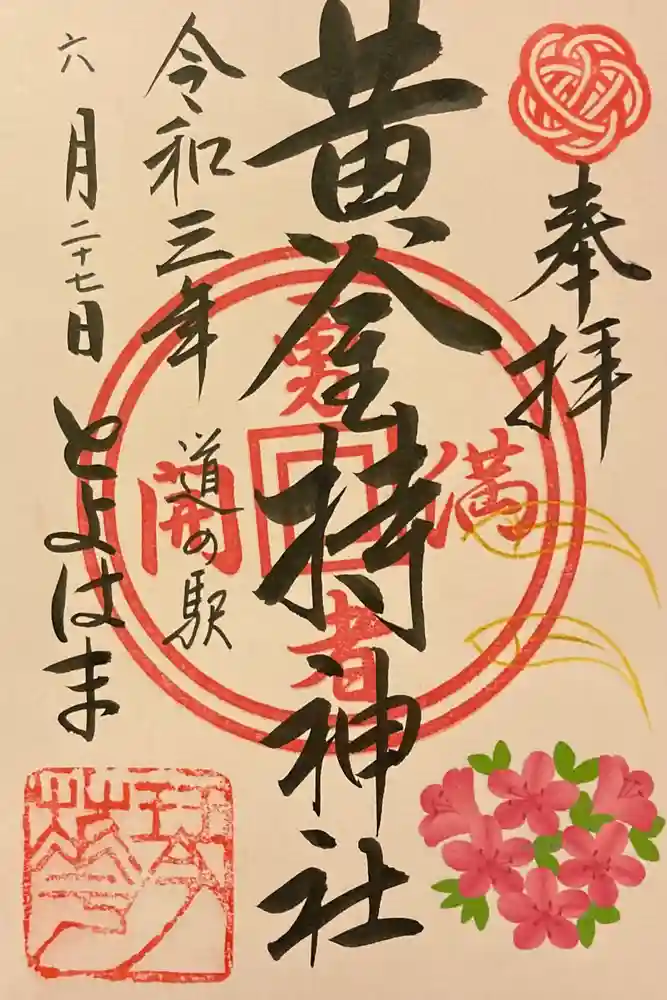 奉拝
黄金持神社
令和三年
六月二十七日
道の駅
とよはま
満
開
者
琵琶